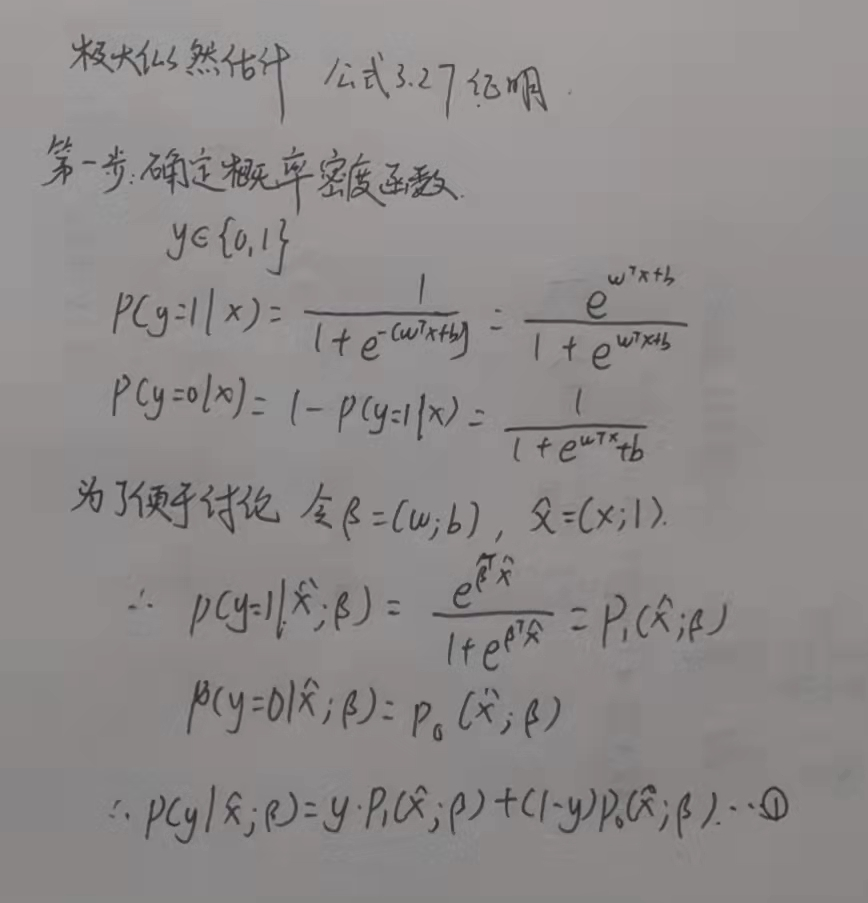 极大似然估计 公式3.27证明.
第一步:确定概率密度函数.
y∈{0,1}
P(y=1|x)= 1/(1+e^{-(wᵀx+b)}) = e^{wᵀx+b}/(1+e^{wᵀx+b})
P(y=0|x)=1-P(y=1|x)= 1/(1+e^{wᵀx}+b)
为了便于讨论 令β=(w;b), x̂=(x;1).
∴ p(y=1|x̂;β)= e^{βᵀx̂}/(1+e^{βᵀx̂}) = P₁(x̂;β)
p(y=0|x̂;β)=p₀(x̂;β)
∴ p(y|x̂;β)=y·P₁(x̂;β)+(1-y)p₀(x̂;β)...①